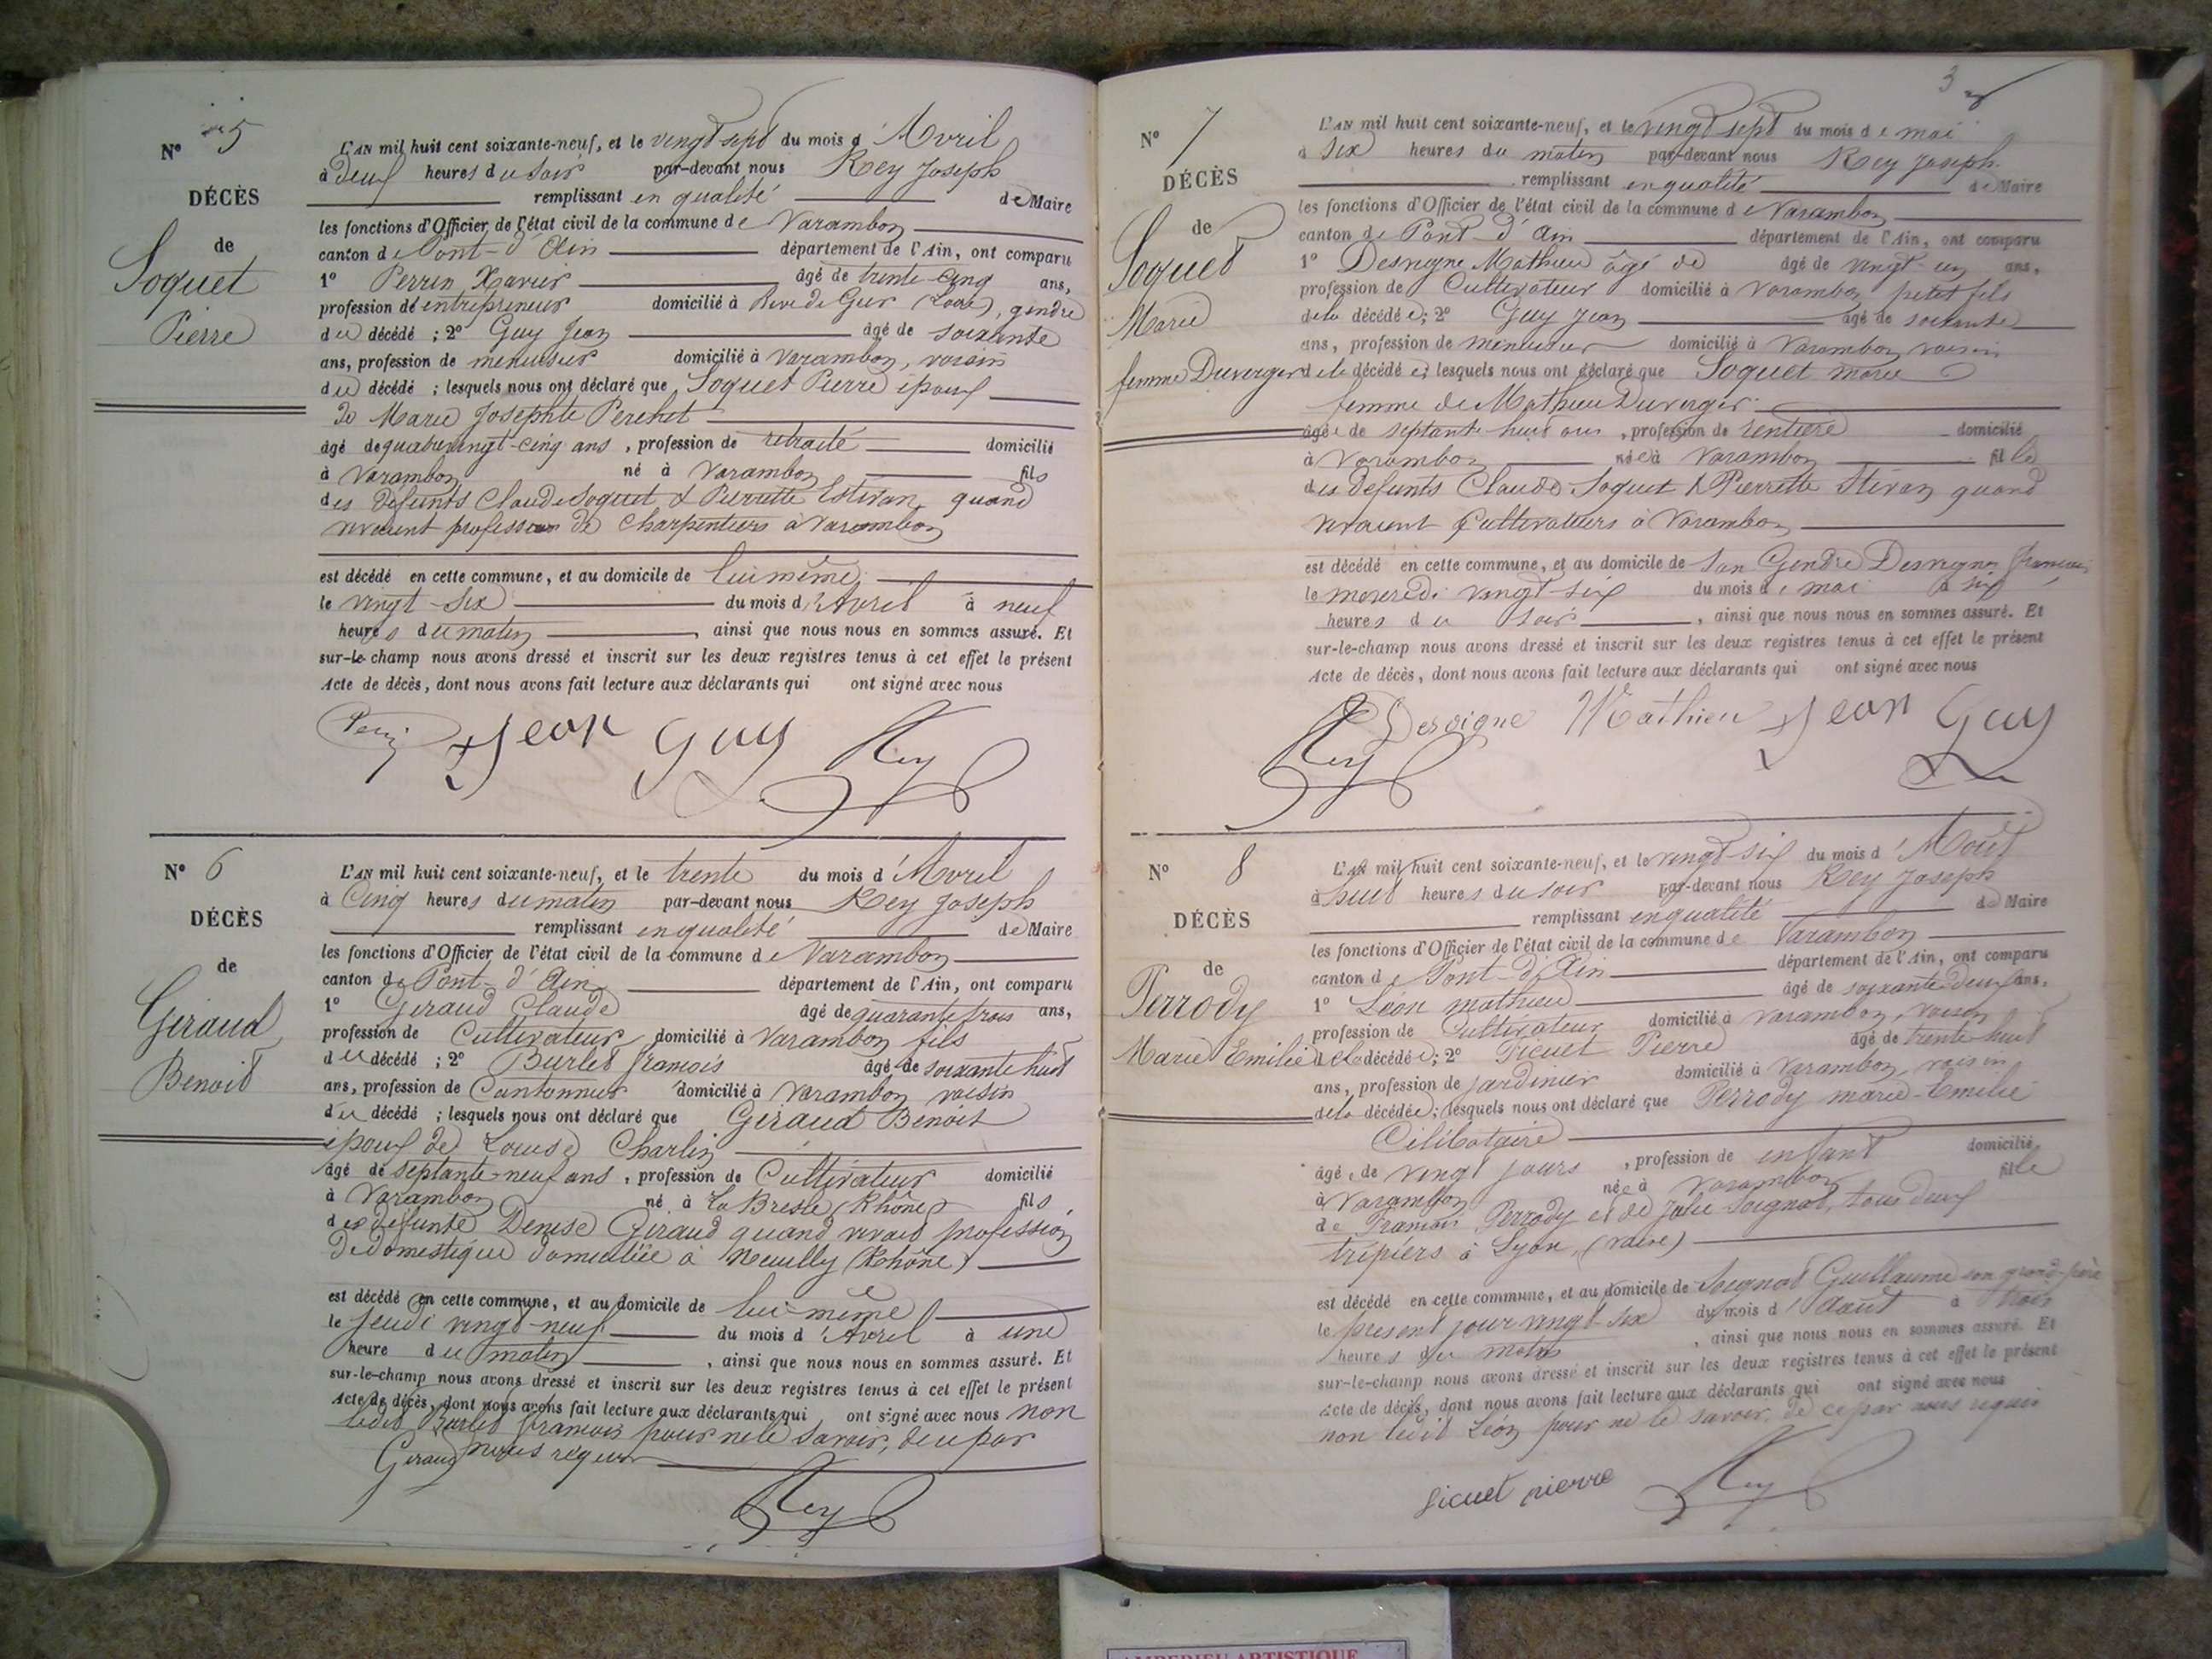 N° 5
DÉCÈS
de
Soquet
Pierre
L'AN mil huit cent soixante-neuf, et le vingt sept du mois d'Avril
à deux heures du soir par-devant nous Rey Joseph
remplissant en qualité de Maire
les fonctions d'Officier de l'état civil de la commune de Varambon
canton de Pont-d'Ain département de l'Ain, ont comparu
1° Perrin Xavier âgé de trente-cinq ans,
profession de entrepreneur domicilié à Rive de Gier (Loire), gendre
du décédé ; 2° Guy Jean âgé de soixante
ans, profession de menuisier domicilié à Varambon, voisin
du décédé ; lesquels nous ont déclaré que Soquet Pierre époux
de Marie Josephte Perchet
âgé de quatrevingt-cinq ans, profession de retraité domicilié
à Varambon né à Varambon fils
des défunts Claude Soquet & Pierrette Estivan quand
vivaient profession de Charpentiers à Varambon
est décédé en cette commune, et au domicile de lui même
le vingt-six du mois d'Avril à neuf
heures du matin, ainsi que nous nous en sommes assuré. Et
sur-le-champ nous avons dressé et inscrit sur les deux registres tenus à cet effet le présent
Acte de décès, dont nous avons fait lecture aux déclarants qui ont signé avec nous
Jean Guy Rey
N° 6
DÉCÈS
de
Giraud
Benoit
L'AN mil huit cent soixante-neuf, et le trente du mois d'Avril
à Cinq heures du matin par-devant nous Rey Joseph
remplissant en qualité de Maire
les fonctions d'Officier de l'état civil de la commune de Varambon
canton de Pont-d'Ain département de l'Ain, ont comparu
1° Geraud Claude âgé de quarante trois ans,
profession de Cultivateur domicilié à Varambon fils
du décédé ; 2° Burlet françois âgé de soixante huit
ans, profession de Cantonnier domicilié à Varambon voisin
du décédé ; lesquels nous ont déclaré que Giraud Benoit
époux de Louise Charlin
âgé de septante-neuf ans, profession de Cultivateur domicilié
à Varambon né à La Bresle (Rhône) fils
des défunte Denise Giraud quand vivait profession
de domestique domiciliée à Neuilly (Rhône)
est décédé en cette commune, et au domicile de lui-même
le jeudi vingt-neuf du mois d'Avril à une
heure du matin, ainsi que nous nous en sommes assuré. Et
sur-le-champ nous avons dressé et inscrit sur les deux registres tenus à cet effet le présent
Acte de décès, dont nous avons fait lecture aux déclarants qui ont signé avec nous non
ledit Burlet françois pour ne le savoir, de ce par
nous requis
Geraud
Rey
3
N° 7
DÉCÈS
de
Soquet
Marie
femme Duverger
L'AN mil huit cent soixante-neuf, et le vingt sept du mois de mai
à six heures du matin par-devant nous Rey Joseph
remplissant en qualité de Maire
les fonctions d'Officier de l'état civil de la commune de Varambon
canton de Pont-d'Ain département de l'Ain, ont comparu
1° Desvigne Mathieu âgé de âgé de vingt-un ans,
profession de Cultivateur domicilié à Varambon petit fils
de la décédée ; 2° Guy Jean âgé de soixante
ans, profession de menuisier domicilié à Varambon voisin
de la décédée, lesquels nous ont déclaré que Soquet marie
femme de Mathieu Duverger
âgée de septante-huit ans, profession de rentière domicilié
à Varambon née à Varambon fille
des défunts Claude Soquet & Pierrette Stivan quand
vivaient Cultivateurs à Varambon
est décédé en cette commune, et au domicile de son Gendre Desvigne françois
le mercredi vingt-six du mois de mai à six
heures du soir, ainsi que nous nous en sommes assuré. Et
sur-le-champ nous avons dressé et inscrit sur les deux registres tenus à cet effet le présent
Acte de décès, dont nous avons fait lecture aux déclarants qui ont signé avec nous
Desvigne Mathieu Jean Guy
Rey
N° 8
DÉCÈS
de
Perrody
Marie Emilie
L'AN mil huit cent soixante-neuf, et le vingt-six du mois d'Aout
à huit heures du soir par-devant nous Rey Joseph
remplissant en qualité de Maire
les fonctions d'Officier de l'état civil de la commune de Varambon
canton de Pont-d'Ain département de l'Ain, ont comparu
1° Léon mathieu âgé de soixante deux ans,
profession de Cultivateur domicilié à Varambon, voisin
de la décédée ; 2° Picuet Pierre âgé de trente huit
ans, profession de jardinier domicilié à Varambon, voisin
de la décédée ; lesquels nous ont déclaré que Perrody marie-Emilie
Célibataire
âgée de vingt jours, profession de enfant domicilié
à Varambon née à Varambon fille
de François Perrody et de Julie Soignat, tous deux
tripiers à Lyon,
est décédé en cette commune, et au domicile de Soignat Guillaume son grand-père
le présent jour vingt-six du mois d'Aout à trois
heures du matin, ainsi que nous nous en sommes assuré. Et
sur-le-champ nous avons dressé et inscrit sur les deux registres tenus à cet effet le présent
Acte de décès, dont nous avons fait lecture aux déclarants qui ont signé avec nous
non ledit Léon pour ne le savoir, de ce par nous requis
picuet pierre Rey
AMPERIEU ARTISTIQUE